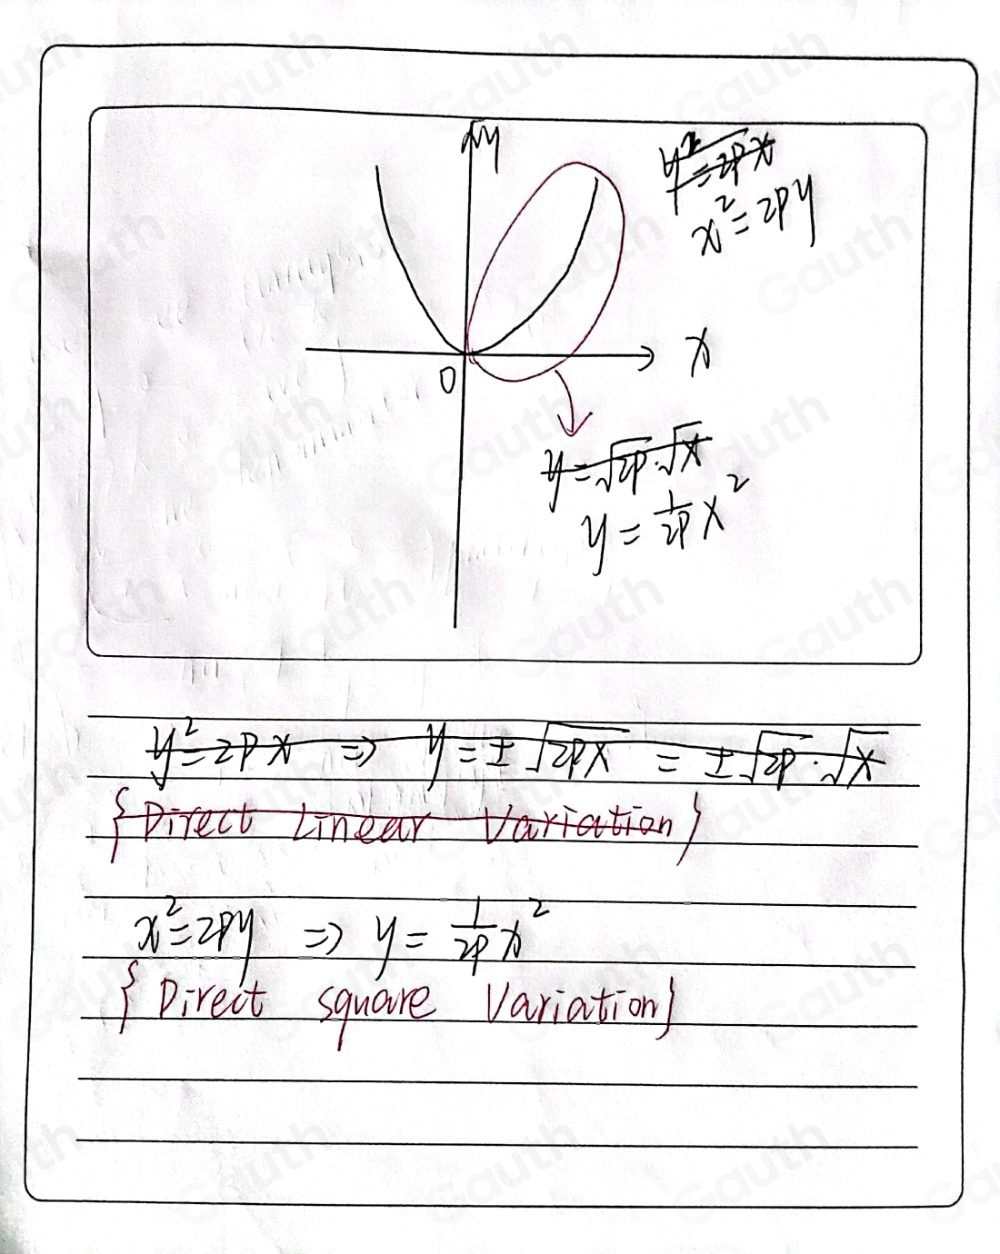 y
y² = 2px
x² = 2py
x
0
y = √2p · √x
y = 1/2p x²
y² = 2px ⇒ y = ± √2px = ± √2p · √x
{Direct Linear Variation}
x² = 2py ⇒ y = 1/2p x²
{Direct square Variation}
Gauth